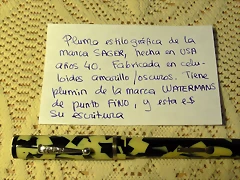 Pluma estilográfica de la
marca SAGER, hecha en USA
años 40. Fabricada en celu-
loides amarillo/oscuros. Tiene
plumin de la marca WATERMANS
de punto FINO, y esta es
su escritura